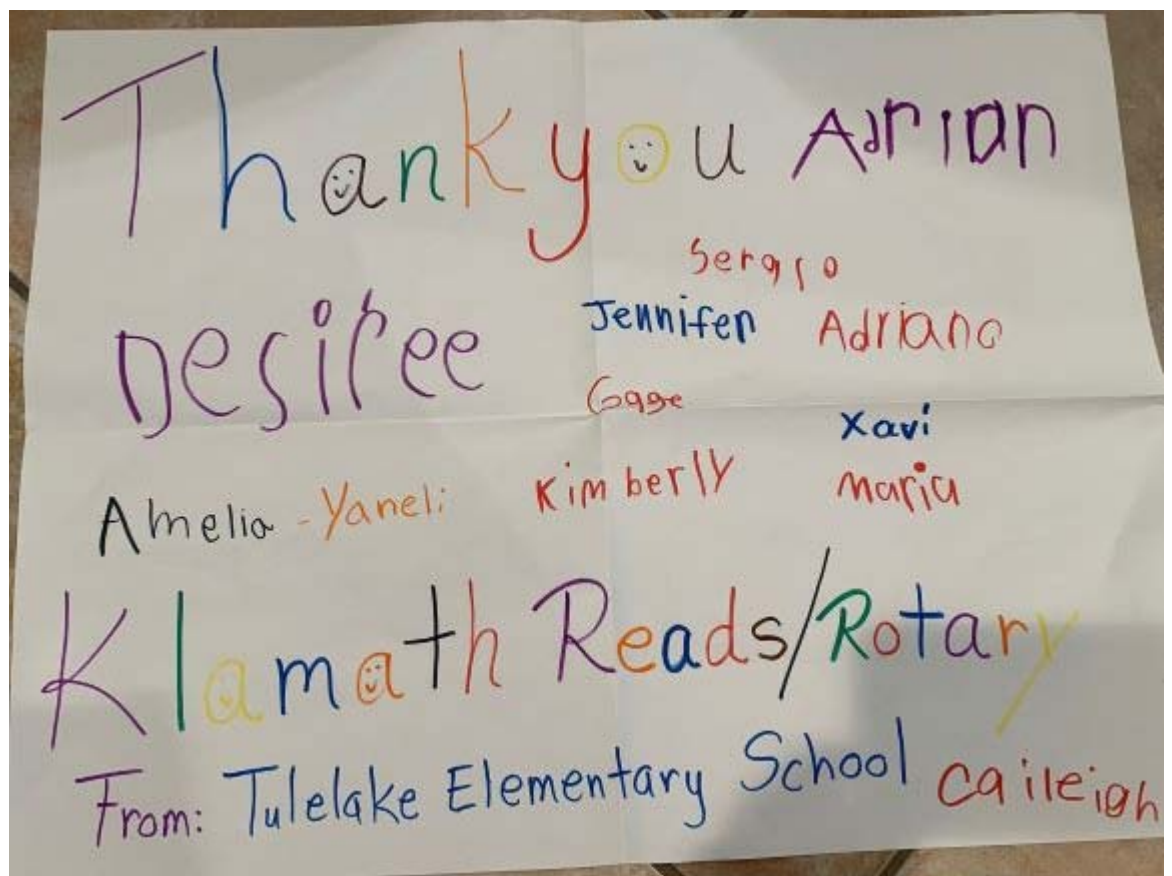 Thank you Adrian
Sergio
Desiree Jennifer Adriano
Gage
Xavi
Amelia - Yaneli Kimberly maria
Klamath Reads/Rotary
From: Tulelake Elementary School Caileigh